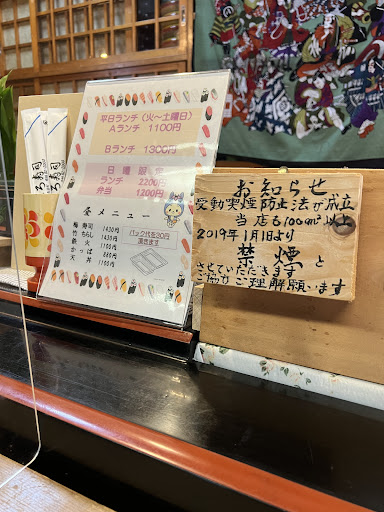 平日ランチ(火~土曜日)
Aランチ 1100円
Bランチ 1300円
日曜限定
ランチ 2200円
弁当 1200円
昼メニュー
梅寿司 1430円
竹ちらし 1430円
鉄火 1100円
かっぱ 880円
天丼 1100円
パック代を30円
頂きます
お知らせ
受動喫煙防止法が成立
当店も100㎡以上
2019年1月1日より
禁煙と
させていただきます
ご協力ご理解願います
寿司